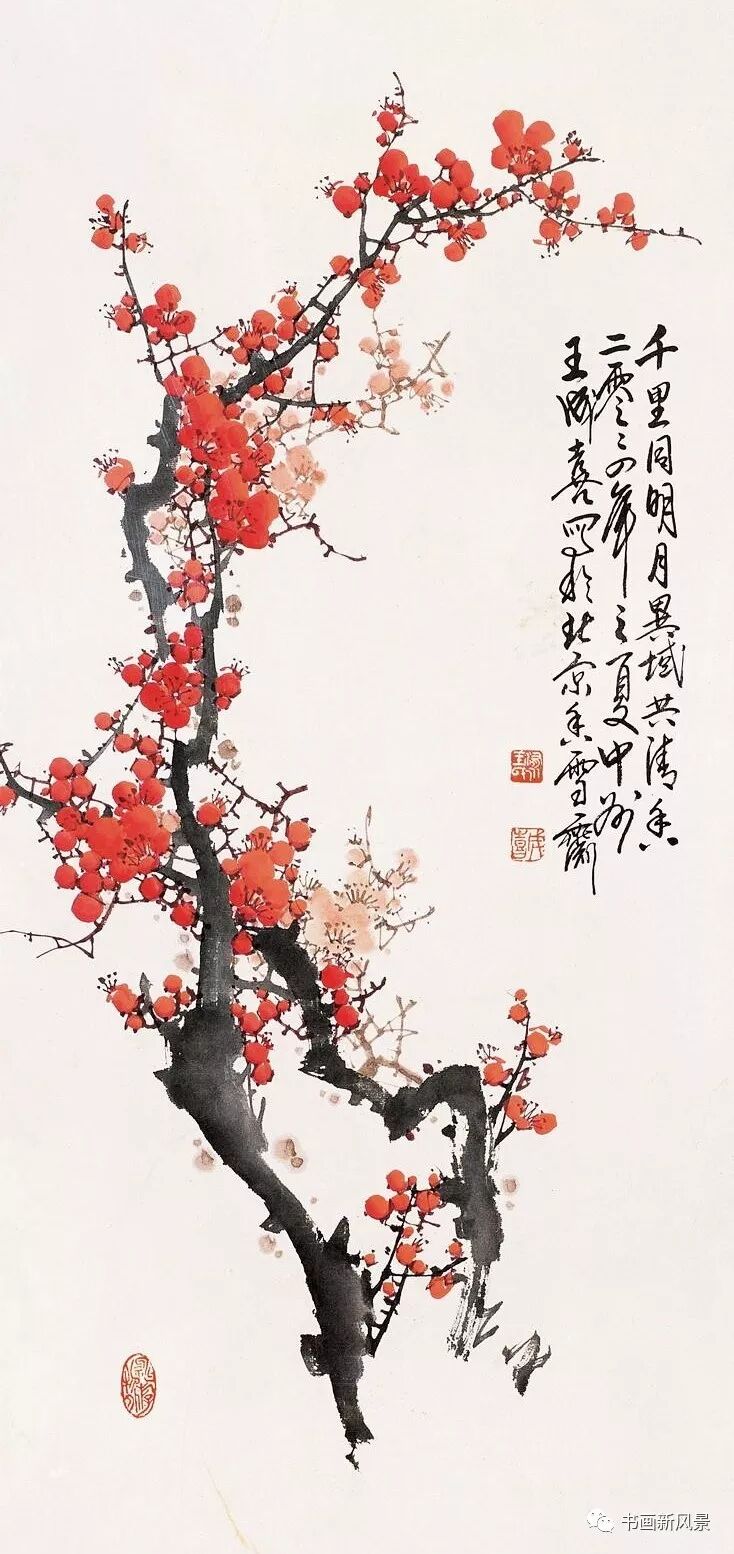 千里同明月異域共清香
二零〻四年之夏中州
王成喜寫於北京香雪齋
成喜
书画新风景